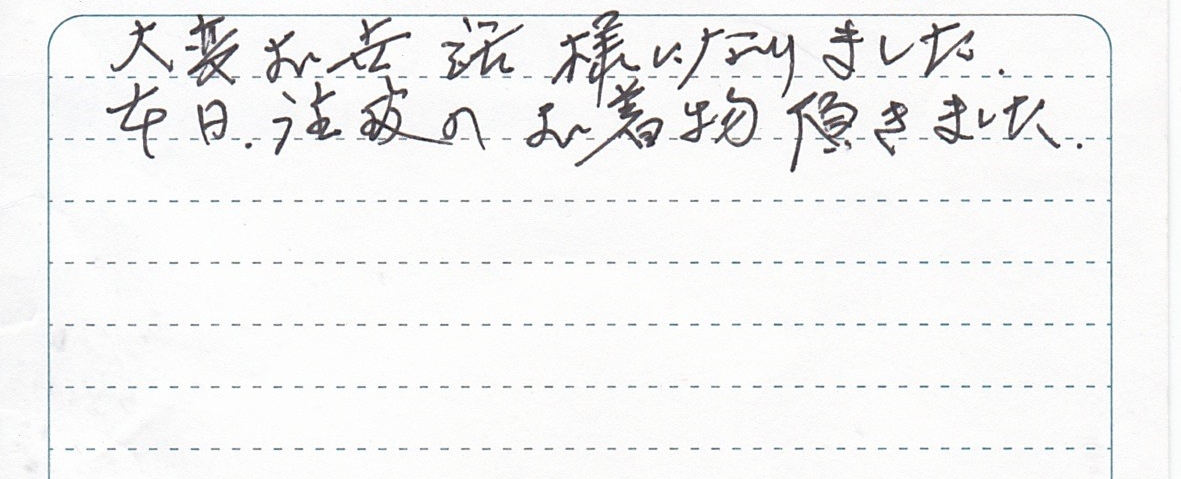 大変お世話様になりました.
本日. の お着物 頂きました.